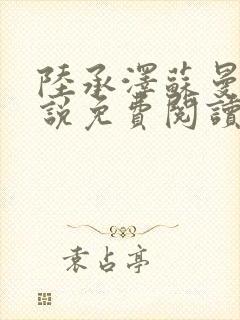 陸承澤蘇曼
說免費閱讀
袁占亭